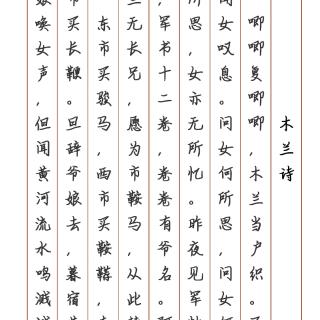 木兰诗
唧唧复唧唧，木兰当户织。
女叹息。问女何所思，问女
思，女亦无所忆。昨夜见军
军书十二卷，卷卷有爷名。
无长兄，愿为市鞍马，从此
东市买骏马，西市买鞍鞯，
买长鞭。旦辞爷娘去，暮宿
唤女声，但闻黄河流水鸣溅